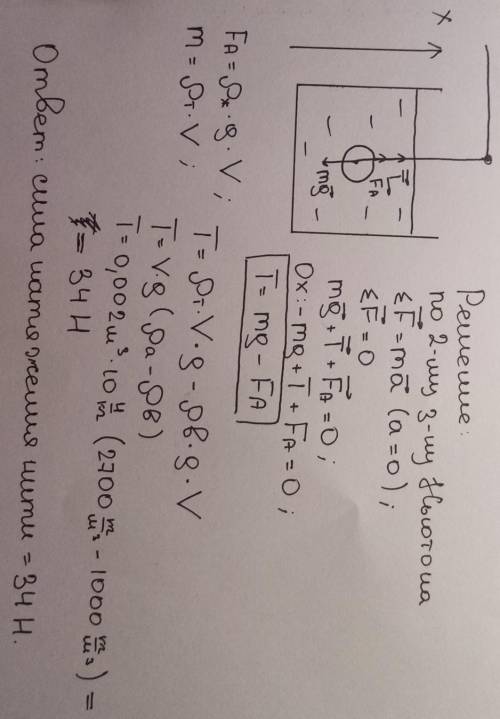 Решение:
по 2-му З-ну Ньютона
ΣF⃗ = ma⃗ (a=0);
ΣF⃗ = 0
mg⃗ + T⃗ + F⃗A = 0;
Ox: -mg + T + FA = 0;
T = mg - FA
X
T⃗
FA
mg⃗
FA = ρж · g · V;
m = ρт · V;
T = ρт · V · g - ρв · g · V
T = V · g (ρа - ρв)
T = 0,002 м³ · 10 Н/м (2700 т/м³ - 1000 т/м³) =
= 34 Н
Ответ: сила натяжения нити = 34 Н.